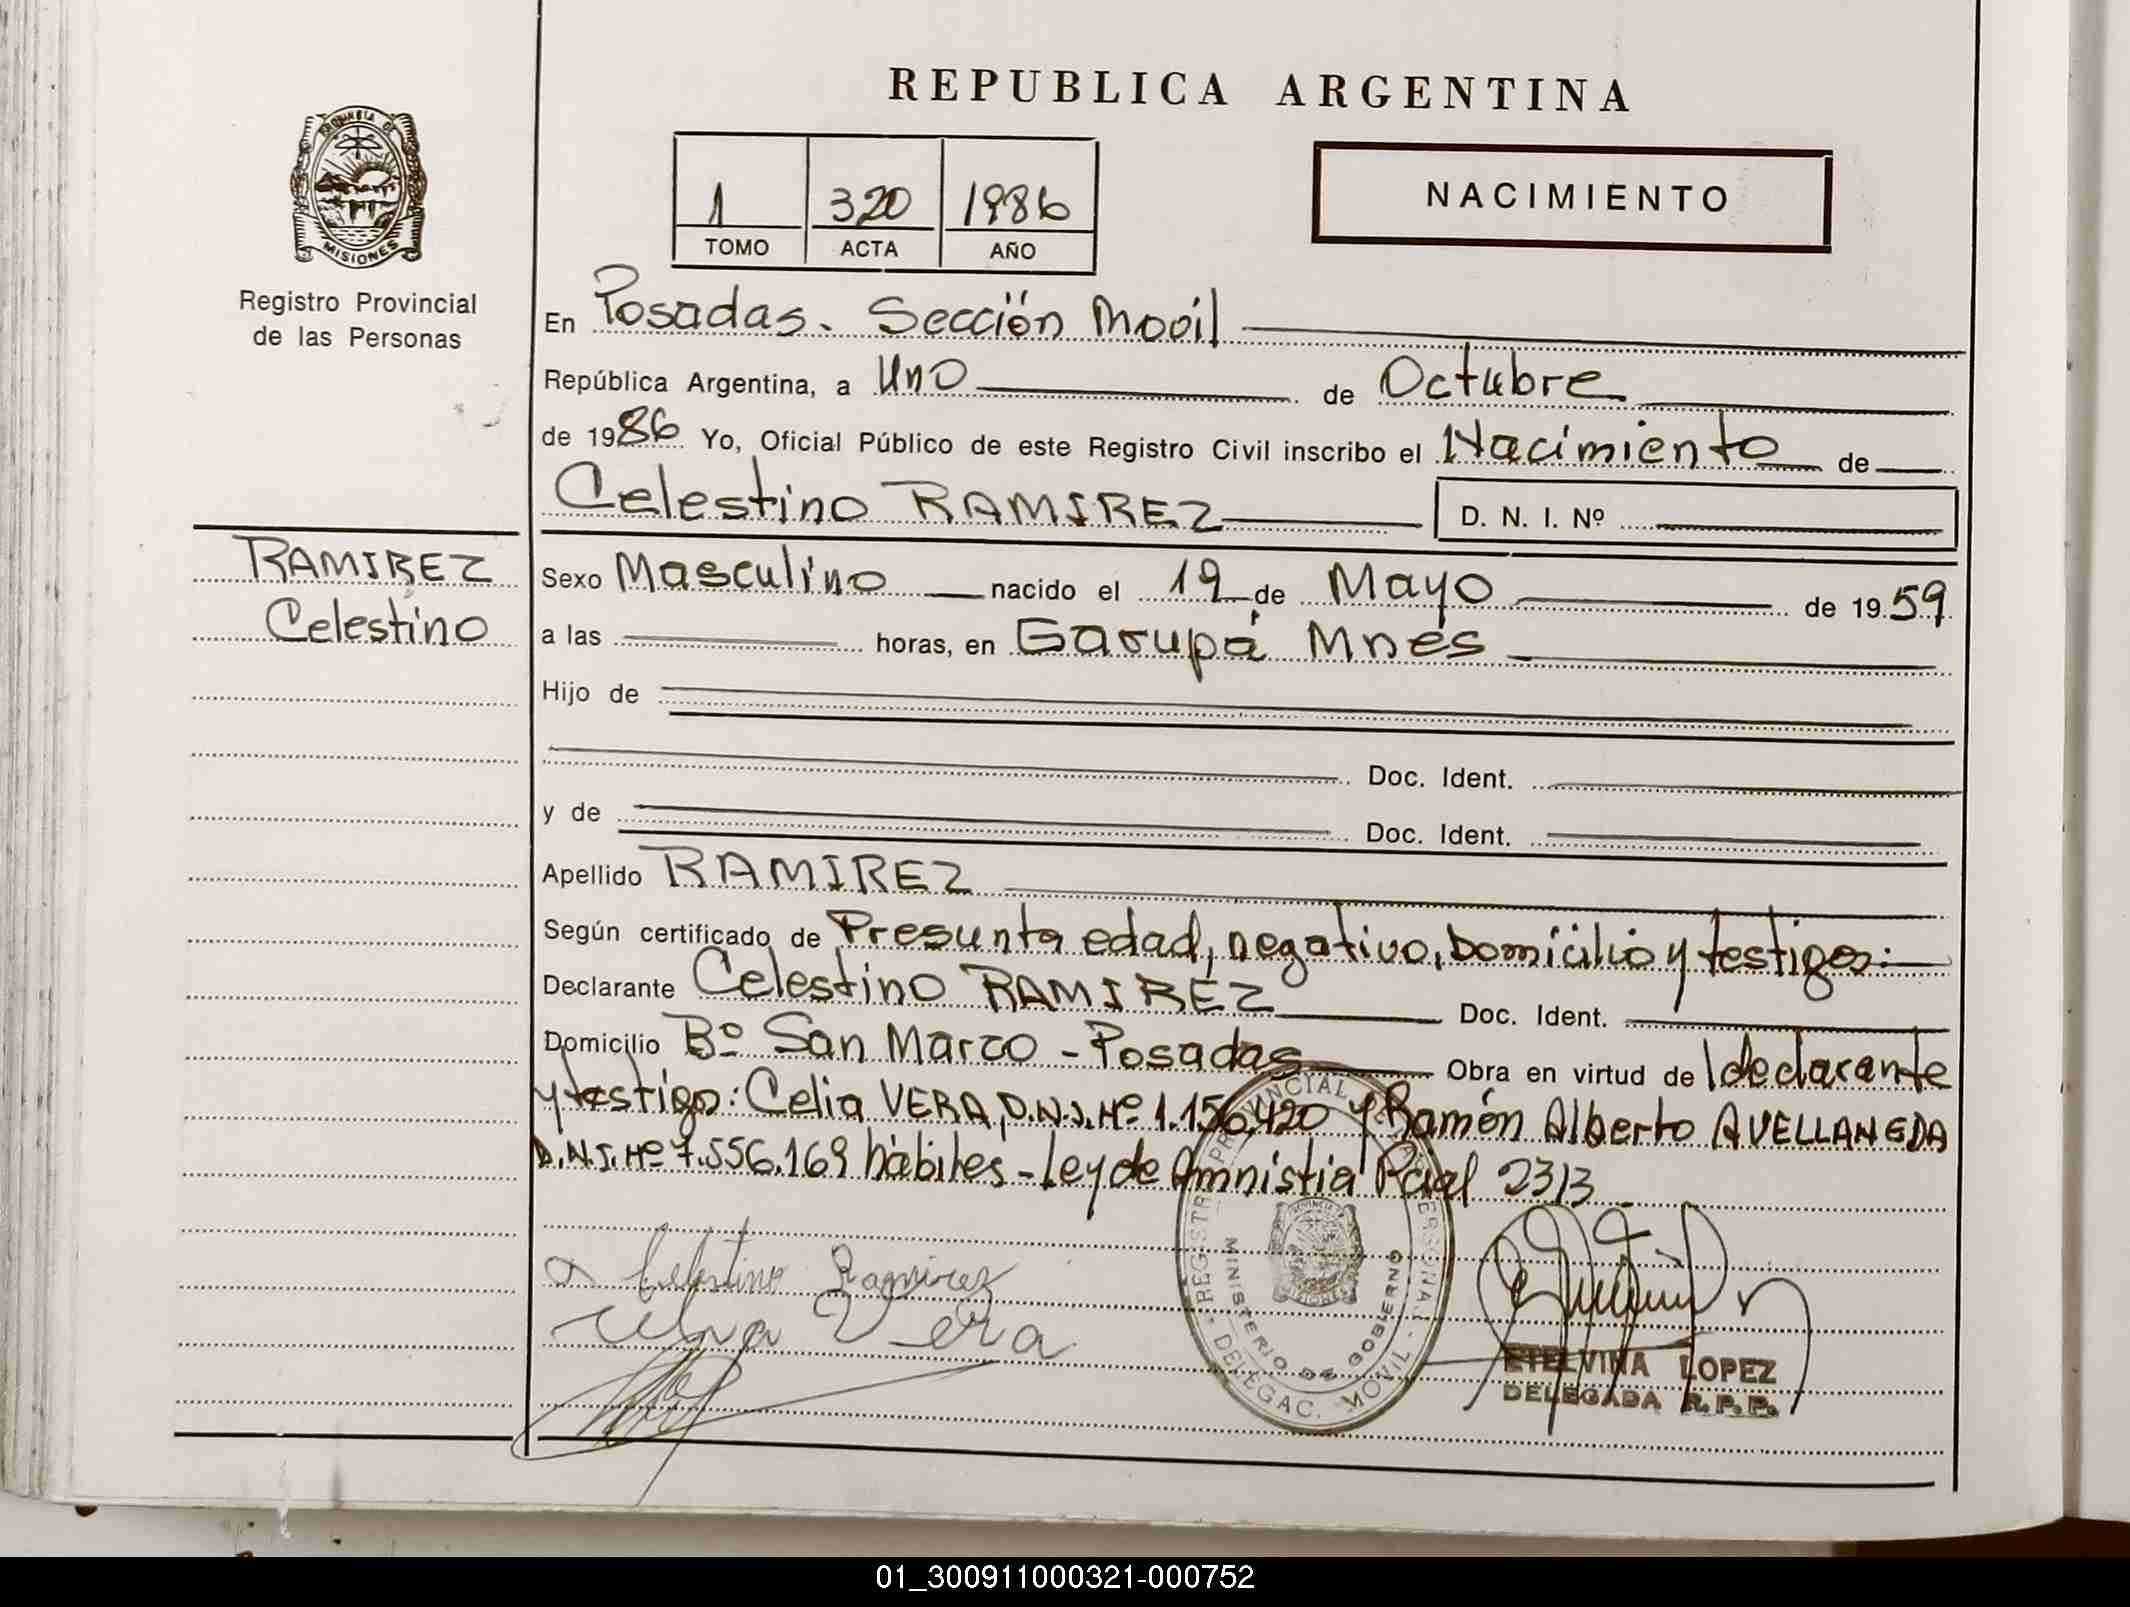 REPUBLICA ARGENTINA
PROVINCIA DE
MISIONES
Registro Provincial
de las Personas
1 320 1986
TOMO ACTA AÑO
NACIMIENTO
En Posadas. Sección Movil
República Argentina, a Uno de Octubre
de 1986 Yo, Oficial Público de este Registro Civil inscribo el Nacimiento de
Celestino RAMIREZ D. N. I. Nº
RAMIREZ
Celestino
Sexo Masculino nacido el 19 de Mayo de 1959
a las horas, en Garupá Mnes
Hijo de
Doc. Ident.
y de Doc. Ident.
Apellido RAMIREZ
Según certificado de Presunta edad, negativo, domicilio y testigos:
Declarante Celestino RAMIREZ Doc. Ident.
Domicilio Bº San Marco - Posadas Obra en virtud de declarante
y testigo: Celia VERA, D.N.I. Nº 1.156.420 y Ramón Alberto AVELLANEDA
D.N.I. Nº 7.556.169 hábiles - Ley de Amnistia Pcial 2313
Celestino Ramirez
Vera
REGISTRO PROVINCIAL DE LAS PERSONAS
MINISTERIO DE GOBIERNO
DELEGAC. MOVIL
ETELVINA LOPEZ
DELEGADA R. P. P.
01_300911000321-000752